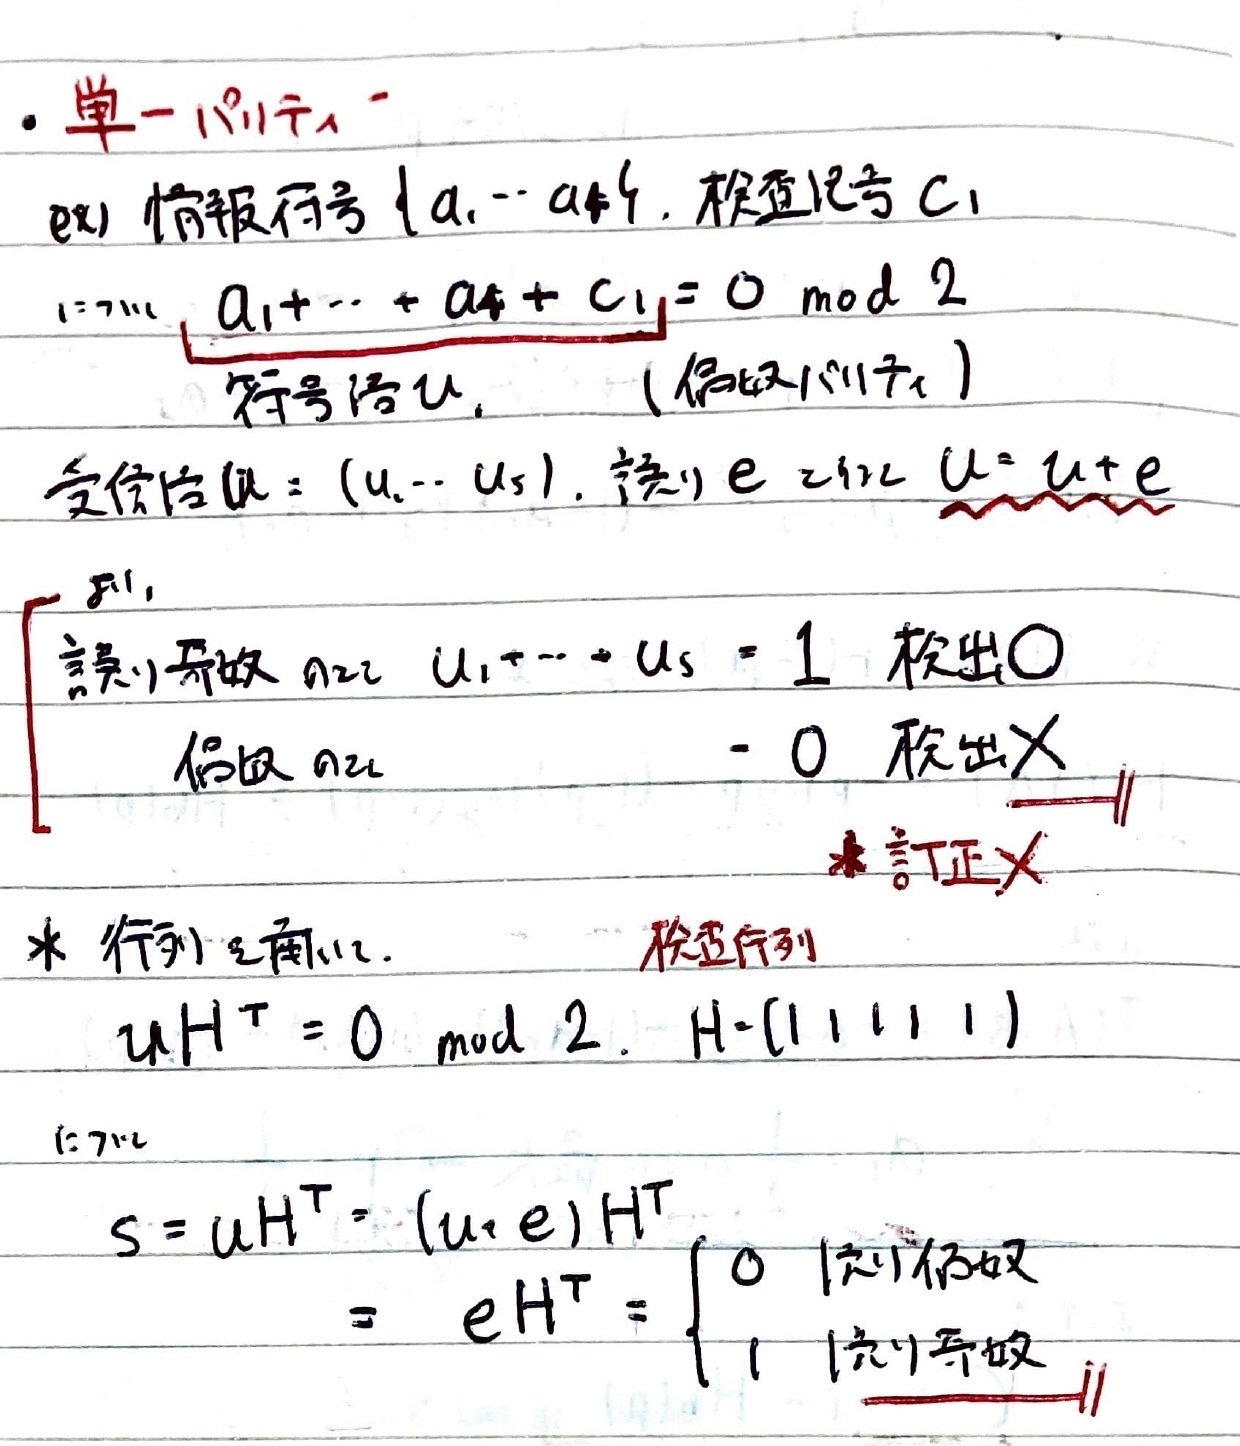 ・単一パリティ-
ex) 情報符号 {a1 … a4}. 検査記号 C1
について a1 + … + a4 + C1 = 0 mod 2
符号語 u. (偶数パリティ)
受信語 u = (u1 … u5). 誤り e とすると u = u + e
より,
誤り奇数のとき u1 + … + u5 = 1 検出○
偶数のとき = 0 検出×
* 訂正×
* 行列を用いて. 検査行列
uH^T = 0 mod 2. H = (1 1 1 1 1)
について
S = uH^T = (u + e)H^T
= eH^T = { 0 誤り偶数
1 誤り奇数